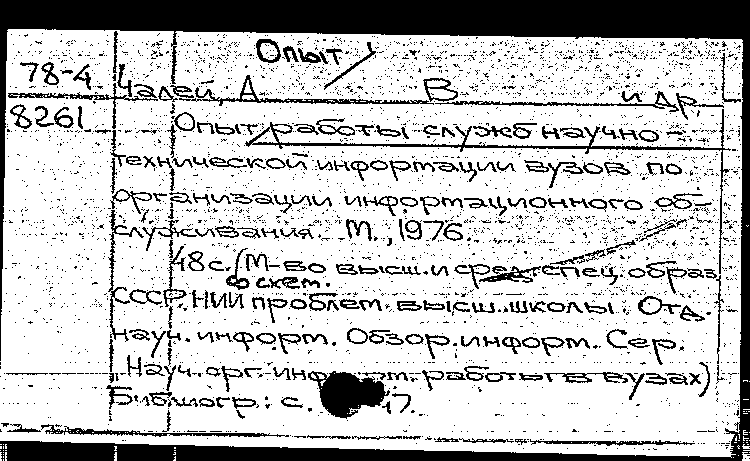 Опыт /
78-4 Чалей, А В и др.
8261 Опыт работы служб научно-
технической информации вузов по
организации информационного об-
служивания. М., 1976.
48 с. (М-во высш. и сред. спец. образ.
со схем.
СССР. НИИ проблем высш. школы. Отд.
науч. информ. Обзор. информ. Сер.
„Науч. орг. информ. работы в вузах)
Библиогр.: с. 17.